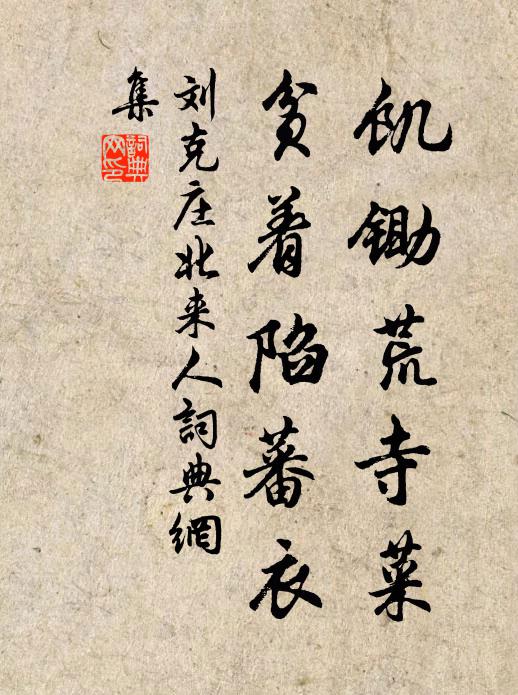 飢鋤荒寺菜
贫着陷蕃衣
刘克庄北来人詞典網
集
詞典
网印